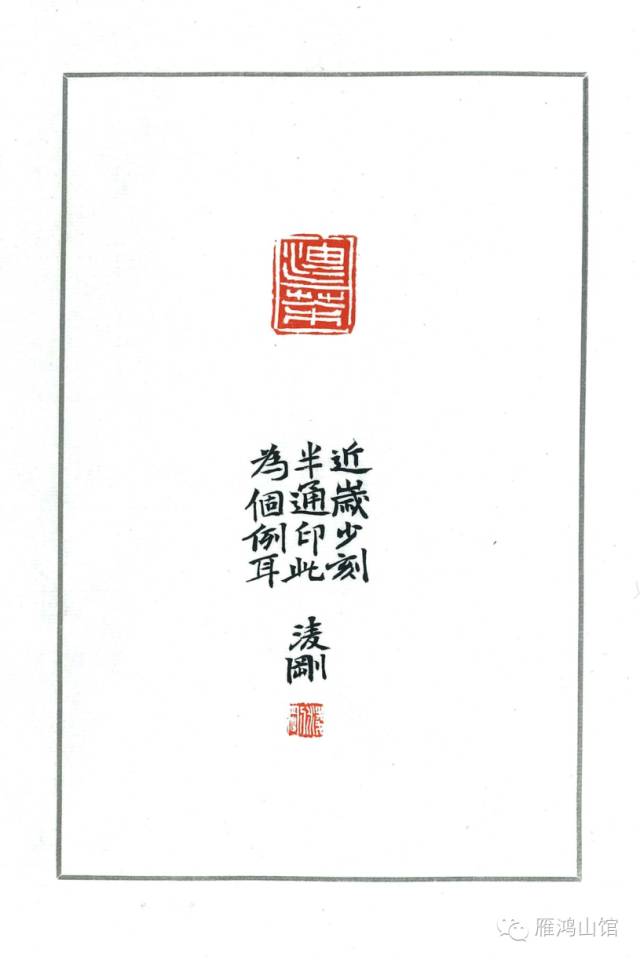 近歲少刻
半通印此
為個例耳
淩剛
雁鸿山馆